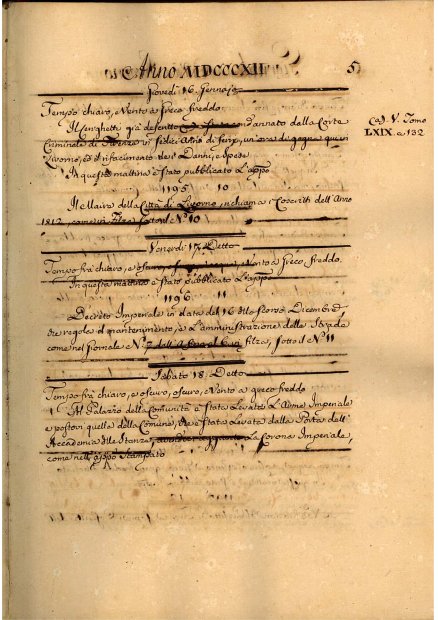 Anno MDCCCXII
5
Giovedì 16. Gennajo
Tempo chiaro, e Vento a Greco freddo.
Il Menghetti già descritto condannato dalla Corte
Criminale di Firenze in sedici Anni di ferri, un'ora di gogna qui in
Livorno, ed al rifacimento dei Danni, e spese
In questa mattina è stato pubblicato L'app.o
Cas. V. Tomo
LXIX. a 132
1195 10
Il Maire della Città di Livorno, richiama i Coscritti dell'Anno
1812, come in Filza sotto il N.o 10
Venerdì 17. Detto
Tempo frà chiaro, e oscuro, Vento a Greco freddo.
In questa mattina è stato pubblicato L'app.o
1196 11
Decreto Imperiale in data del 16 dello scorso Dicembre,
che regola il mantenimento, e L'amministrazione delle Strade
come nel giornale N. 7 in filza, sotto il N.o 11
Sabato 18. Detto
Tempo frà chiaro, e oscuro, oscuro, e Vento a greco freddo
Al Palazzo della Comunità è stata Levate L'Arme Imperiale
e postovi quella della Comune, ed è stata Levata dalla Porta dell'
Accademia delle Stanze, La Corona Imperiale,
come nell'app.o stampato